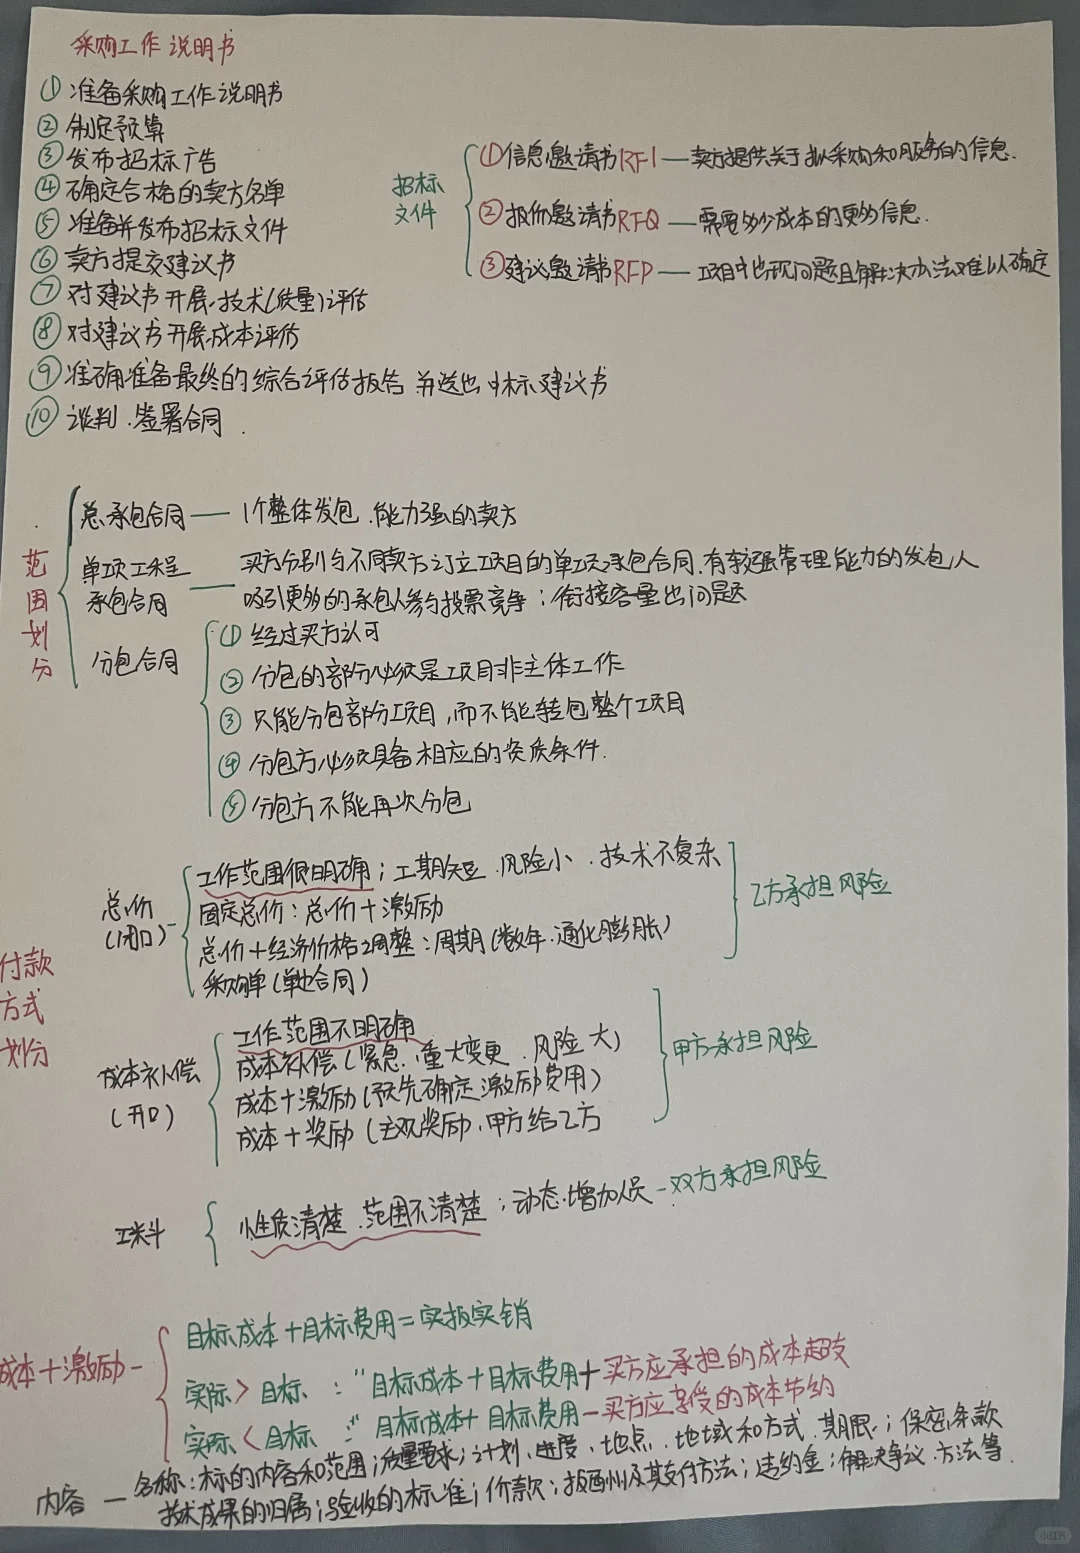 采购工作说明书
① 准备采购工作说明书
② 制定预算
③ 发布招标广告
④ 确定合格的卖方名单
⑤ 准备并发布招标文件
⑥ 卖方提交建议书
⑦ 对建议书开展技术(质量)评估
⑧ 对建议书开展成本评估
⑨ 准确准备最终的综合评估报告 并选出中标建议书
⑩ 谈判、签署合同.
招标文件
① 信息邀请书RFI — 卖方提供关于拟采购和服务的信息.
② 报价邀请书RFQ — 需要多少成本的更多信息.
③ 建议邀请书RFP — 项目中出现问题且解决办法难以确定
范围划分
总承包合同 — 1个整体发包.能力强的卖方
单项工程承包合同 — 买方分别与不同卖方订立项目的单项承包合同.有较强管理能力的发包人
吸引更多的承包人参与投票竞争；衔接容量出问题
分包合同
① 经过买方认可
② 分包的部分必须是项目非主体工作
③ 只能分包部分项目,而不能转包整个项目
④ 分包方必须具备相应的资质条件.
⑤ 分包方不能再次分包
付款方式划分
总价(闭口) -
工作范围很明确；工期短.风险小.技术不复杂
固定总价：总价+激励
总价+经济价格调整：周期(数年.通化膨胀)
采购单(单边合同)
乙方承担风险
成本补偿(开口)
工作范围不明确
成本补偿(紧急.重大变更.风险大)
成本+激励(预先确定激励费用)
成本+奖励(主观奖励.甲方给乙方
甲方承担风险
工料
性质清楚.范围不清楚；动态增加人员 - 双方承担风险
成本+激励 -
目标成本+目标费用=实报实销
实际>目标：" 目标成本+目标费用+买方应承担的成本超支
实际<目标：" 目标成本+目标费用-买方应享受的成本节约
内容 — 名称：标的内容和范围；质量要求；计划、进度、地点、地域和方式.期限；保密条款
技术成果的归属；验收的标准；价款；报酬及其支付方法；违约金；解决争议.方法等.
小红书